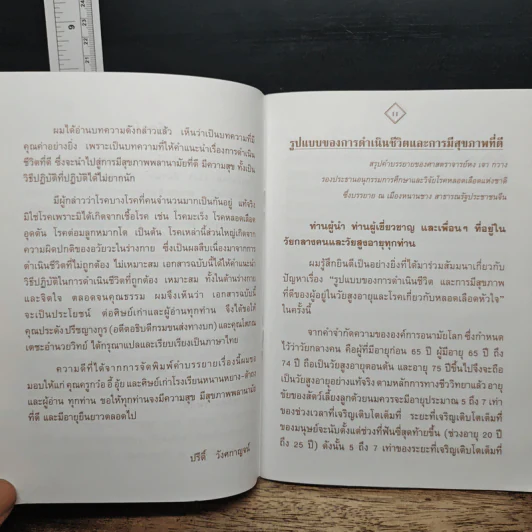 ผมได้อ่านบทความดังกล่าวแล้ว เห็นว่าเป็นบทความที่มี
คุณค่าอย่างยิ่ง เพราะเป็นบทความที่ให้คำแนะนำเรื่องการดำเนิน
ชีวิตที่ดี ซึ่งจะนำไปสู่การมีสุขภาพพลานามัยที่ดี มีความสุข ทั้งเป็น
วิธีปฏิบัติที่ปฏิบัติได้ไม่ยากนัก
มีผู้กล่าวว่าโรคบางโรคที่คนจำนวนมากเป็นกันอยู่ แท้จริง
มิใช่โรคเพราะมิได้เกิดจากเชื้อโรค เช่น โรคมะเร็ง โรคหลอดเลือด
อุดตัน โรคต่อมลูกหมากโต เป็นต้น โรคเหล่านี้ส่วนใหญ่เกิดจาก
ความผิดปกติของอวัยวะในร่างกาย ซึ่งเป็นผลสืบเนื่องมาจากการ
ดำเนินชีวิตที่ไม่ถูกต้อง ไม่เหมาะสม เอกสารฉบับนี้ได้ให้คำแนะนำ
วิธีปฏิบัติในการดำเนินชีวิตที่ถูกต้อง เหมาะสม ทั้งในด้านร่างกาย
และจิตใจ ตลอดจนคุณธรรม ผมจึงเห็นว่า เอกสารฉบับนี้
จะเป็นประโยชน์ ต่อศิษย์เก่าและผู้อ่านทุกท่าน จึงได้ขอให้
คุณประดัง ปรีชญางกูร (อดีตอธิบดีกรมขนส่งทางบก) และคุณโสภณ
เตชะอำนวยวิทย์ ได้กรุณาแปลและเรียบเรียงเป็นภาษาไทย
ความดีที่ได้จากการจัดพิมพ์คำบรรยายเรื่องนี้ผมขอ
มอบให้แก่ คุณครูกวัย อี้ อุ้ย และศิษย์เก่าโรงเรียนหนานหยาง-ลำปาง
และผู้อ่าน ทุกท่าน ขอให้ทุกท่านจงมีความสุข มีสุขภาพพลานามัย
ที่ดี และมีอายุยืนยาวตลอดไป
ปรีดิ์ วังศกาญจน์
11
รูปแบบของการดำเนินชีวิตและการมีสุขภาพที่ดี
สรุปคำบรรยายของศาสตราจารย์หง เจา กวาง
รองประธานอนุกรรมการศึกษาและวิจัยโรคหลอดเลือดแห่งชาติ
ซึ่งบรรยาย ณ เมืองหนานชาง สาธารณรัฐประชาชนจีน
ท่านผู้นำ ท่านผู้เชี่ยวชาญ และเพื่อนๆ ที่อยู่ใน
วัยกลางคนและวัยสูงอายุทุกท่าน
ผมรู้สึกยินดีเป็นอย่างยิ่งที่ได้มาร่วมสัมมนาเกี่ยวกับ
ปัญหาเรื่อง "รูปแบบของการดำเนินชีวิต และการมีสุขภาพ
ที่ดีของผู้อยู่ในวัยสูงอายุและโรคเกี่ยวกับหลอดเลือดหัวใจ"
ในครั้งนี้
จากคำจำกัดความขององค์การอนามัยโลก ซึ่งกำหนด
ไว้ว่าวัยกลางคน คือผู้ที่มีอายุก่อน 65 ปี ผู้มีอายุ 65 ปี ถึง
74 ปี ถือเป็นวัยสูงอายุตอนต้น และอายุ 75 ปีขึ้นไปจึงจะถือ
เป็นวัยสูงอายุอย่างแท้จริง ตามหลักการทางชีววิทยาแล้ว อายุ
ขัยของสัตว์เลี้ยงลูกด้วยนมควรจะมีอายุประมาณ 5 ถึง 7 เท่า
ของช่วงเวลาที่เจริญเติบโตเต็มที่ ระยะที่เจริญเติบโตเต็มที่
ของมนุษย์จะนับตั้งแต่ช่วงที่ฟันซี่สุดท้ายขึ้น (ช่วงอายุ 20 ปี
ถึง 25 ปี) ดังนั้น 5 ถึง 7 เท่าของระยะที่เจริญเติบโตเต็มที่